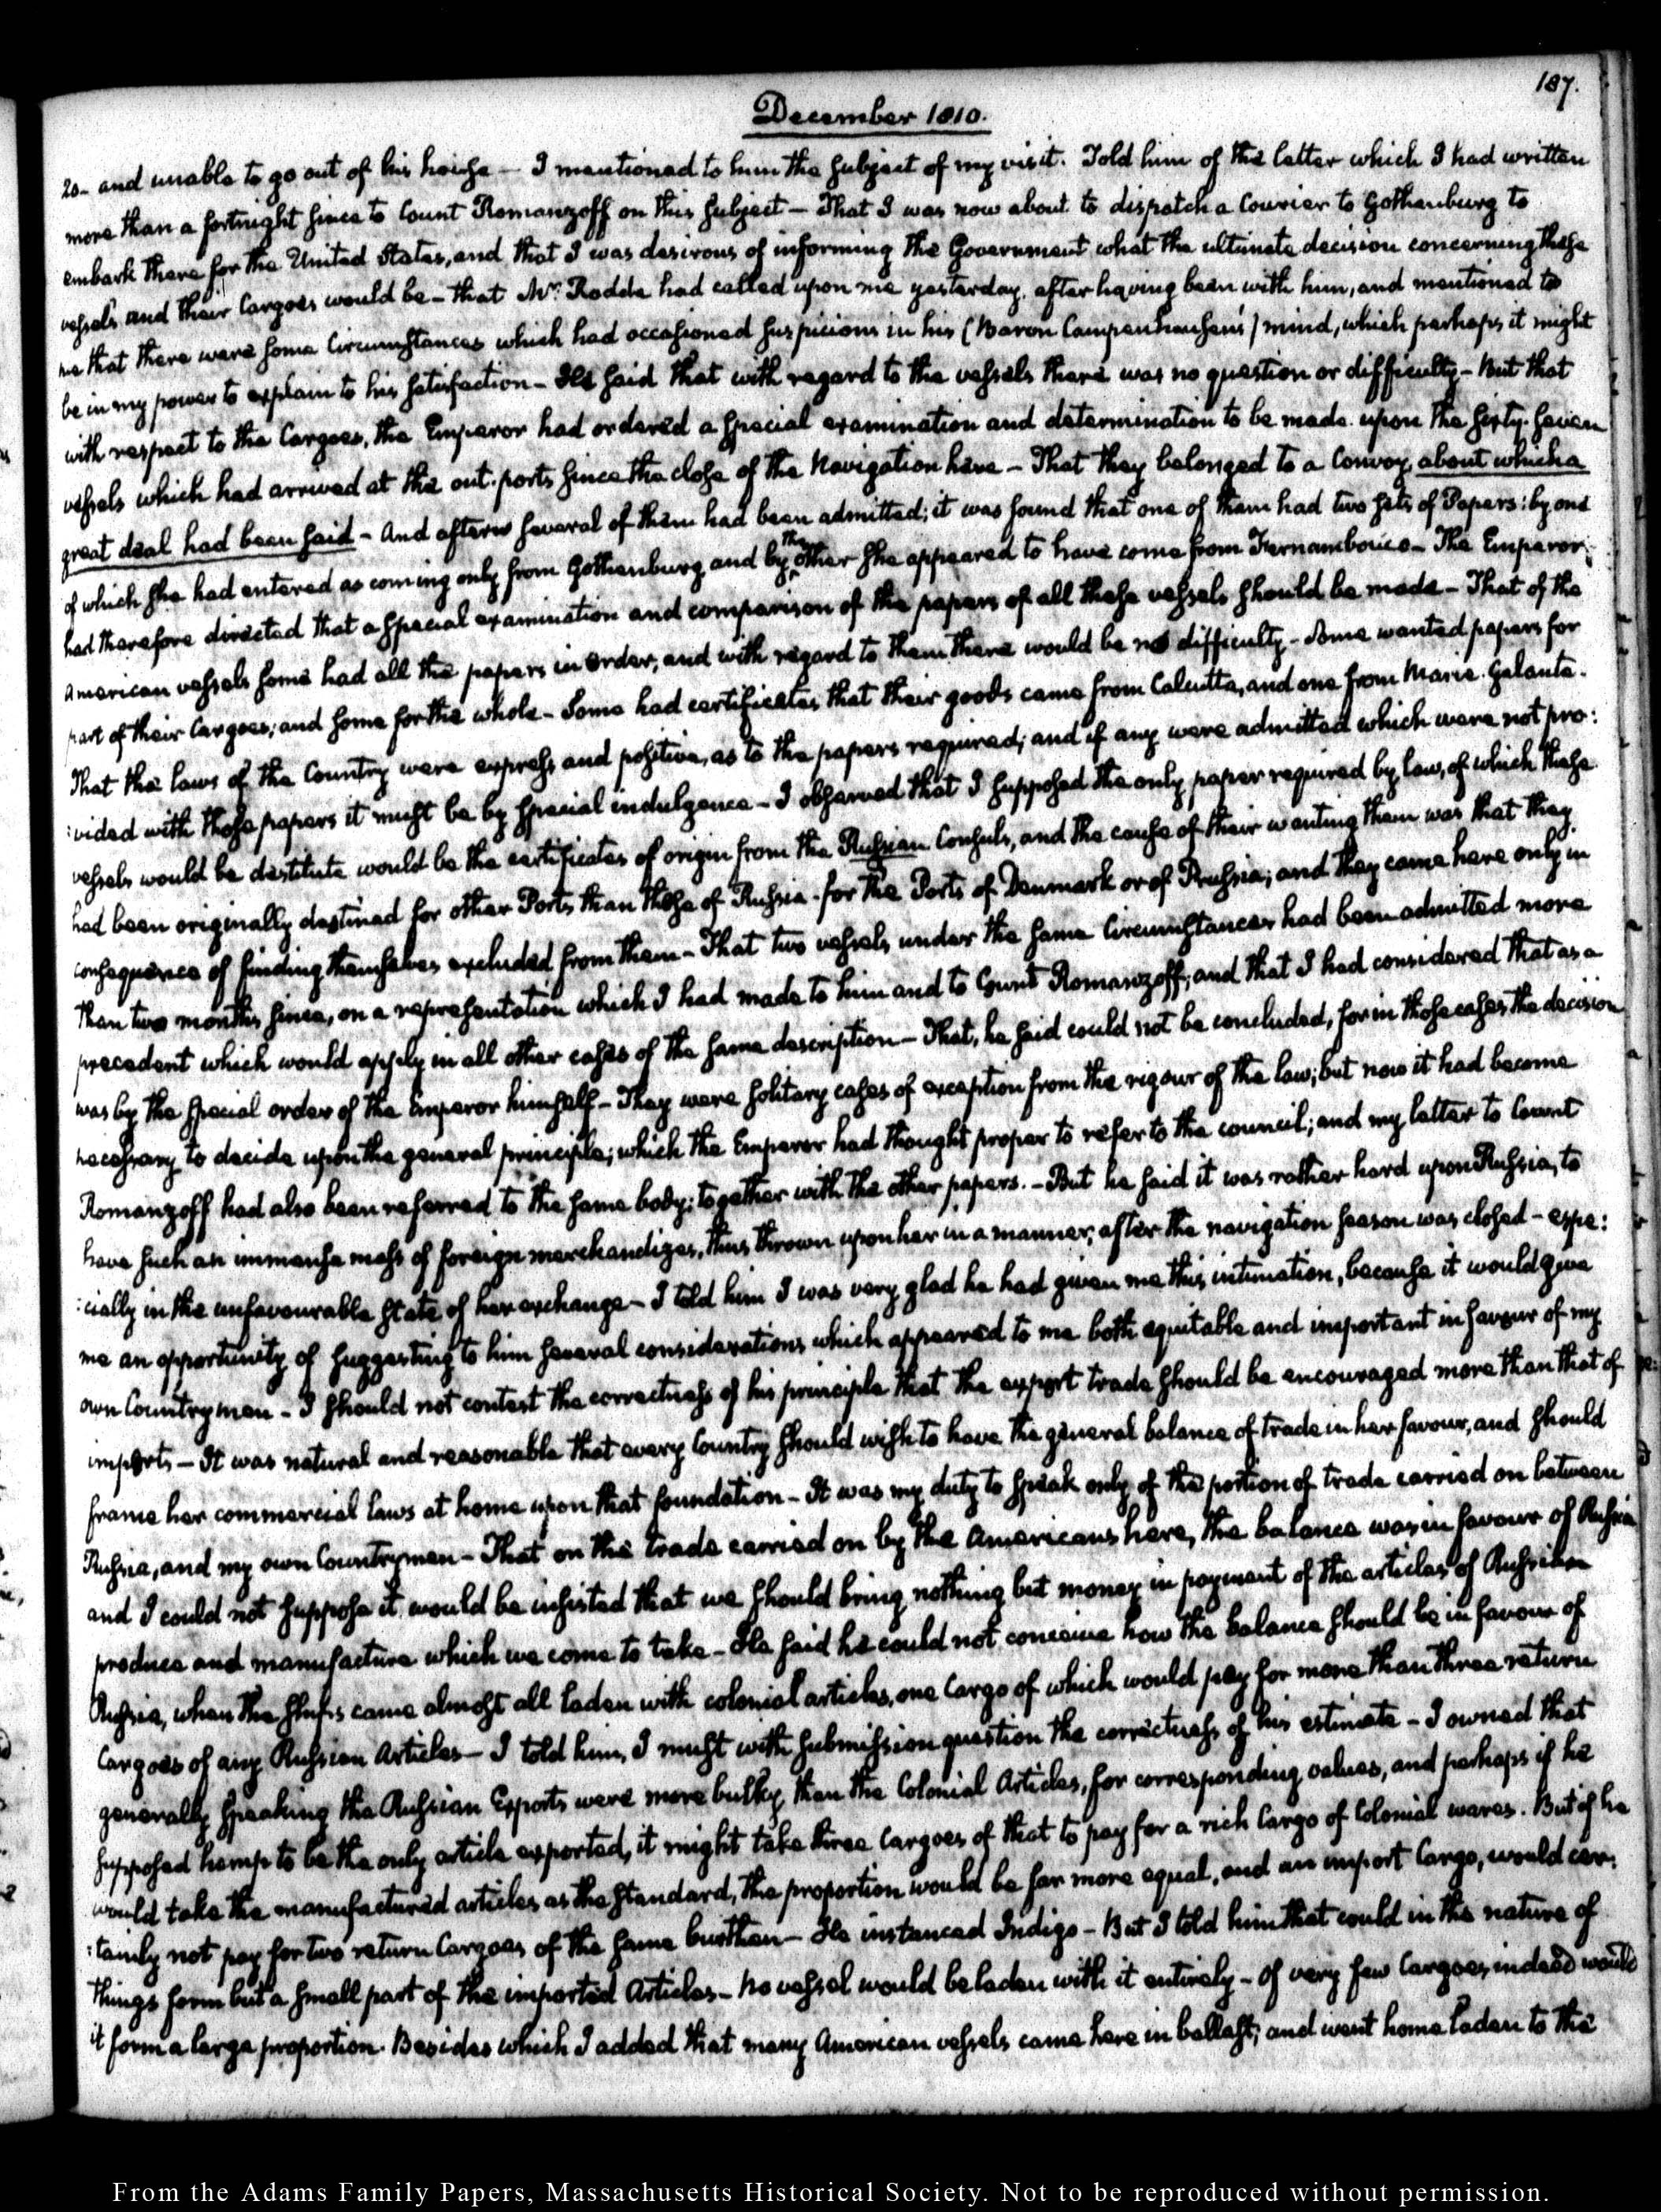 187.
December 1810.
20- and unable to go out of his house — I mentioned to him the subject of my visit. Told him of the letter which I had written
more than a fortnight since to Count Romanzoff on this subject — That I was now about to dispatch a Courier to Gothenburg to
embark there for the United States, and that I was desirous of informing the Government what the ultimate decision concerning these
vessels and their Cargoes would be — that Mr. Rodde had called upon me yesterday, after having been with him, and mentioned to
me that there were some Circumstances which had occasioned suspicions in his (Baron Campenhausen's) mind, which perhaps it might
be in my power to explain to his satisfaction — He said that with regard to the vessels there was no question or difficulty — But that
with respect to the Cargoes, the Emperor had ordered a special examination and determination to be made upon the sixty-seven
vessels which had arrived at the out-ports since the close of the Navigation here — That they belonged to a Convoy, about which a
great deal had been said — And after several of them had been admitted; it was found that one of them had two sets of Papers: by one
of which she had entered as coming only from Gothenburg, and by the other she appeared to have come from Fernambouco — The Emperor,
had therefore directed that a special examination and comparison of the papers of all these vessels should be made — That of the
American vessels some had all the papers in order, and with regard to them there would be no difficulty — Some wanted papers for
part of their Cargoes; and some for the whole — Some had certificates that their goods came from Calcutta, and one from Marie-Galante.
That the laws of the Country were express and positive, as to the papers required; and if any were admitted which were not pro:
:vided with those papers it must be by special indulgence — I observed that I supposed the only paper required by law, of which these
vessels would be destitute would be the certificates of origin from the Russian Consuls, and the cause of their wanting them was that they
had been originally destined for other Ports than those of Russia — for the Ports of Denmark or of Prussia; and they came here only in
consequence of finding themselves excluded from them — That two vessels under the same Circumstances had been admitted more
than two months since, on a representation which I had made to him and to Count Romanzoff; and that I had considered that as a
precedent which would apply in all other cases of the same description — That, he said could not be concluded, for in those cases the decision
was by the special order of the Emperor himself — They were solitary cases of exception from the rigour of the law; but now it had become
necessary to decide upon the general principle; which the Emperor had thought proper to refer to the council; and my letter to Count
Romanzoff had also been referred to the same body; together with the other papers. — But he said it was rather hard upon Russia, to
have such an immense mass of foreign merchandizes, thus thrown upon her in a manner, after the navigation season was closed — espe:
:cially in the unfavourable state of her exchange — I told him I was very glad he had given me this intimation, because it would give
me an opportunity of suggesting to him several considerations which appeared to me both equitable and important in favour of my
own Countrymen — I should not contest the correctness of his principle that the export trade should be encouraged more than that of
imports — It was natural and reasonable that every Country should wish to have the general balance of trade in her favour, and should
frame her commercial laws at home upon that foundation — It was my duty to speak only of the portion of trade carried on between
Russia, and my own Countrymen — That on the trade carried on by the Americans here, the balance was in favour of Russia
and I could not suppose it would be insisted that we should bring nothing but money in payment of the articles of Russian
produce and manufacture which we come to take — He said he could not conceive how the balance should be in favour of
Russia, when the ships came almost all laden with colonial articles, one Cargo of which would pay for more than three return
Cargoes of any Russian Articles — I told him, I must with submission question the correctness of his estimate — I owned that
generally speaking the Russian Exports were more bulky than the Colonial Articles, for corresponding values, and perhaps if he
supposed hemp to be the only article exported, it might take three Cargoes of that to pay for a rich Cargo of Colonial wares. But if he
would take the manufactured articles as the standard, the proportion would be far more equal, and an import Cargo, would cer:
:tainly not pay for two return Cargoes of the same burthen — He instanced Indigo — But I told him that could in the nature of
things form but a small part of the imported Articles — no vessel would be laden with it entirely — of very few Cargoes, indeed would
it form a large proportion. Besides which I added that many American vessels came here in ballast, and went home laden to the
From the Adams Family Papers, Massachusetts Historical Society. Not to be reproduced without permission.